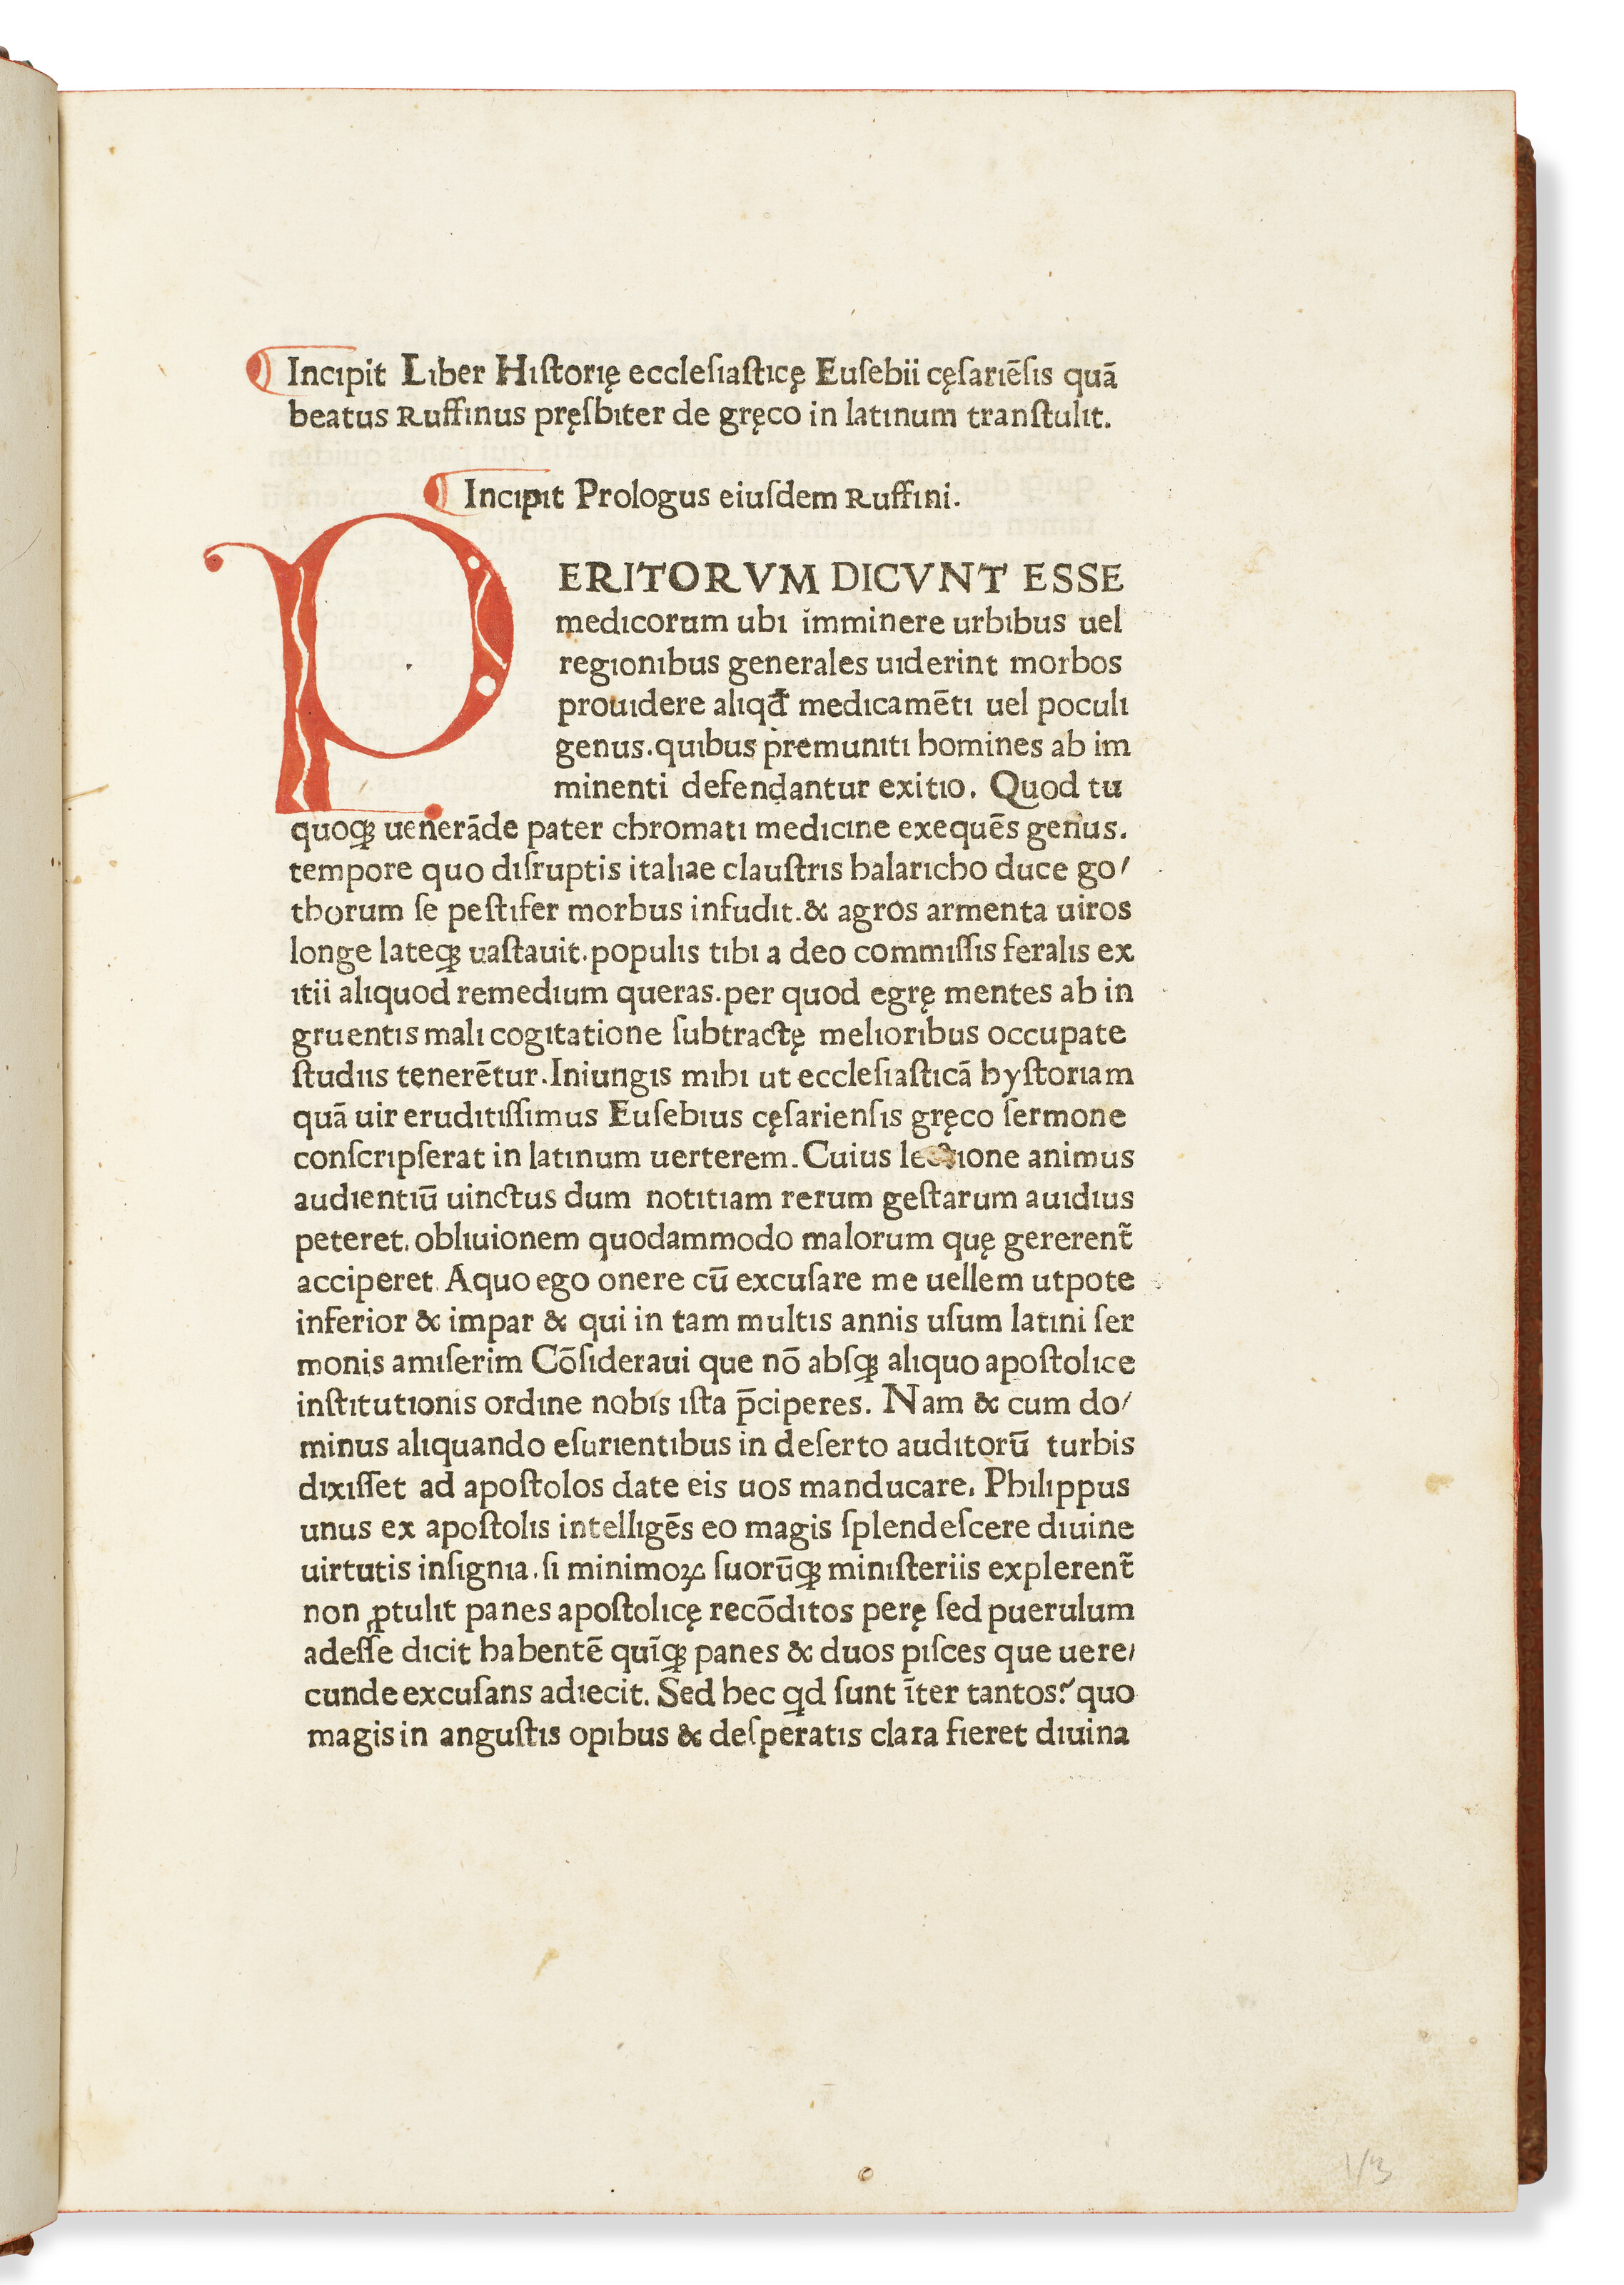 Incipit Liber Hiſtorię eccleſiaſticę Euſebii cęſariēſis quā
beatus Ruffinus pręſbiter de gręco in latinum tranſtulit.
Incipit Prologus eiuſdem Ruffini.
PERITORVM DICVNT ESSE
medicorum ubi imminere urbibus uel
regionibus generales uiderint morbos
prouidere aliqđ medicamēti uel poculi
genus.quibus p̄remuniti homines ab im
minenti defendantur exitio. Quod tu
quoqꝫ uenerāde pater chromati medicine exequēs genus.
tempore quo diſruptis italiae clauſtris halaricho duce go/
thorum ſe peſtifer morbus infudit.& agros armenta uiros
longe lateqꝫ uaſtauit.populis tibi a deo commiſſis feralis ex
itii aliquod remedium queras.per quod egrę mentes ab in
gruentis mali cogitatione ſubtractę melioribus occupate
ſtudiis tenerētur.Iniungis mihi ut eccleſiaſticā hyſtoriam
quā uir eruditiſſimus Euſebius cęſarienſis gręco ſermone
conſcripſerat in latinum uerterem.Cuius lectione animus
audientiū uinctus dum notitiam rerum geſtarum auidius
peteret.obliuionem quodammodo malorum quę gererent̄
acciperet.Aquo ego onere cū excuſare me uellem utpote
inferior & impar & qui in tam multis annis uſum latini ſer
monis amiſerim Cōſideraui que nō abſqꝫ aliquo apoſtolice
inſtitutionis ordine nobis iſta p̄ciperes. Nam & cum do/
minus aliquando eſurientibus in deſerto auditorū turbis
dixiſſet ad apoſtolos date eis uos manducare. Philippus
unus ex apoſtolis intelligēs eo magis ſplendeſcere diuine
uirtutis inſignia.ſi minimoꝝ ſuorūqꝫ miniſteriis explerent̄
non ꝓtulit panes apoſtolicę recōditos perę ſed puerulum
adeſſe dicit habentē quīqꝫ panes & duos piſces que uere/
cunde excuſans adiecit. Sed hec qd ſunt īter tantos? quo
magis in anguſtis opibus & deſperatis clara fieret diuina